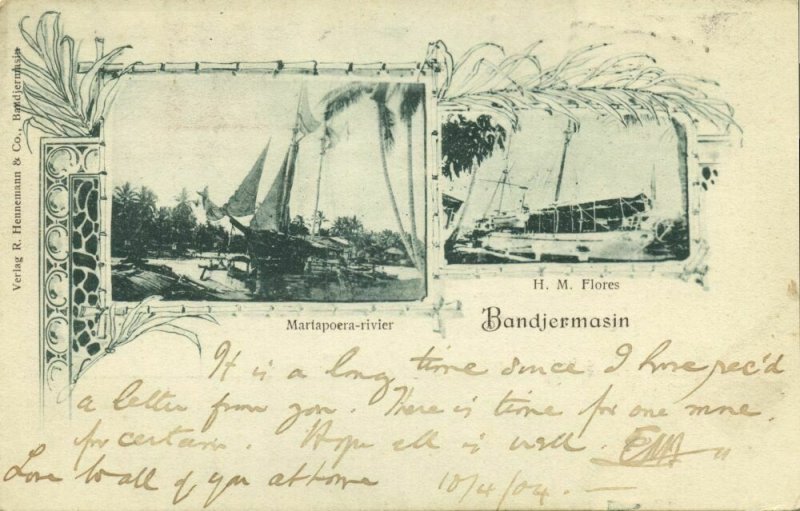 Verlag R. Hennemann & Co., Bandjermasin
H. M. Flores
Martapoera-rivier
Bandjermasin
It is a long time since I have rec'd
a letter from you. There is time for one more
for certain. Hope all is well.
Love to all of you at home 10/4/04. —